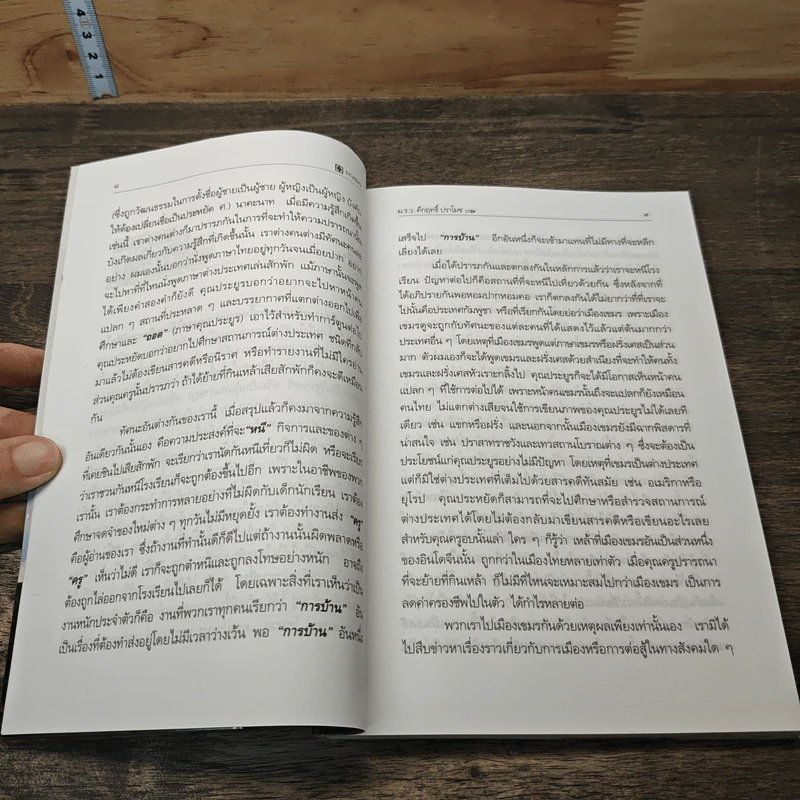 4
3
2
1
๘
(ซึ่งถูกวัฒนธรรมในการตั้งชื่อผู้ชายเป็นผู้ชาย ผู้หญิงเป็นผู้หญิง
ให้ต้องเปลี่ยนชื่อเป็นประหยัด ศ.) นาคะนาท เมื่อมีความรู้สึกเกิดขึ้น
เช่นนี้ เราต่างคนต่างก็มาปรารภกันในการที่จะทำให้ความปรารถนานั้น
บังเกิดผลเกี่ยวกับความรู้สึกที่เกิดขึ้นนั้น เราต่างคนต่างมีทัศนะ
อย่าง ผมเองนั้นบอกว่านั่งพูดภาษาไทยอยู่ทุกวันจนเมื่อยปาก
จะไปหาที่ที่ไหนนั่งพูดภาษาต่างประเทศเล่นสักพัก แม้ภาษานั้นจะพูด
ได้เพียงคำสองคำก็ยังดี คุณประยูรบอกว่าอยากจะไปหาหน้าคน
แปลก ๆ สถานที่ประหลาด ๆ และบรรยากาศที่แตกต่างออกไปเพื่อ
ศึกษาและ "ถอด" (ภาษาคุณประยูร) เอาไว้สำหรับทำการ์ตูนต่อไป
คุณประหยัดบอกว่าอยากไปศึกษาสถานการณ์ต่างประเทศ ชนิดที่กลับ
มาแล้วไม่ต้องเขียนสารคดีหรือนิราศ หรือทำรายงานที่ไม่มีใครอ่าน
ส่วนคุณครูนั้นปรารภว่า ถ้าได้ย้ายที่กินเหล้าเสียสักพักก็คงจะดีเหมือน
กัน
ทัศนะอันต่างกันของเรานี้ เมื่อสรุปแล้วก็คงมาจากความรู้สึก
อันเดียวกันนั้นเอง คือความประสงค์ที่จะ"หนี" กิจการและของต่าง ๆ
ที่เคยชินไปเสียสักพัก จะเรียกว่าเรานัดกันหนีเที่ยวก็ไม่ผิด หรือจะเรียก
ว่าเราชวนกันหนีโรงเรียนก็จะถูกต้องขึ้นไปอีก เพราะในอาชีพของพวก
เรานั้น เราต้องกระทำการหลายอย่างที่ไม่ผิดกับเด็กนักเรียน เราต้อง
ศึกษาจดจำของใหม่ต่าง ๆ ทุกวันไม่มีหยุดยั้ง เราต้องทำงานส่ง "ครู"
คือผู้อ่านของเรา ซึ่งถ้างานที่ทำนั้นดีก็ดีไปแต่ถ้างานนั้นผิดพลาดหรือ
"ครู" เห็นว่าไม่ดี เราก็จะถูกตำหนิและถูกลงโทษอย่างหนัก อาจถึง
ต้องถูกไล่ออกจากโรงเรียนไปเลยก็ได้ โดยเฉพาะสิ่งที่เราเห็นว่าเป็น
งานหนักประจำตัวก็คือ งานที่พวกเราทุกคนเรียกว่า "การบ้าน" อัน
เป็นเรื่องที่ต้องทำส่งอยู่โดยไม่มีเวลาว่างเว้น พอ "การบ้าน" อันหนึ่ง
ม.ร.ว. คึกฤทธิ์ ปราโมช
๙
เสร็จไป "การบ้าน" อีกอันหนึ่งก็จะเข้ามาแทนที่ไม่มีทางที่จะหลีก
เลี่ยงได้เลย
เมื่อได้ปรารภกันและตกลงกันในหลักการแล้วว่าเราจะหนีโรง
เรียน ปัญหาต่อไปก็คือสถานที่ที่จะหนีไปเที่ยวด้วยกัน ซึ่งหลังจากที่
ได้อภิปรายกันพอหอมปากหอมคอ เราก็ตกลงกันได้ไม่ยากว่าที่ที่เราจะ
ไปนั้นคือประเทศกัมพูชา หรือที่เรียกกันโดยย่อว่าเมืองเขมร เพราะเมือง
เขมรดูจะถูกกับทัศนะของแต่ละคนที่ได้แสดงไว้แล้วแต่ต้นมากกว่า
ประเทศอื่น ๆ โดยเหตุที่เมืองเขมรพูดแต่ภาษาเขมรหรือฝรั่งเศสเป็นส่วน
มาก ตัวผมเองก็จะได้พูดเขมรและฝรั่งเศสด้วยสำเนียงที่จะทำให้คนทั้ง
เขมรและฝรั่งเศสหัวเราะกลิ้งไป คุณประยูรก็จะได้มีโอกาสเห็นหน้าคน
แปลก ๆ ที่ใช้การต่อไปได้ เพราะหน้าคนเขมรนั้นถึงจะแปลกก็ยังเหมือน
คนไทย ไม่แตกต่างเสียจนใช้การเขียนภาพของคุณประยูรไม่ได้เลยที
เดียว เช่น แขกหรือฝรั่ง และนอกจากนั้นเมืองเขมรยังมีฉากพิสดารที่
น่าสนใจ เช่น ปราสาทราชวังและเทวสถานโบราณต่าง ๆ ซึ่งจะต้องเป็น
ประโยชน์แก่คุณประยูรอย่างไม่มีปัญหา โดยเหตุที่เขมรเป็นต่างประเทศ
แต่ก็มิใช่ต่างประเทศที่เต็มไปด้วยสารคดีทันสมัย เช่น อเมริกาหรือ
ยุโรป คุณประหยัดก็สามารถที่จะไปศึกษาหรือสำรวจสถานการณ์
ต่างประเทศได้โดยไม่ต้องกลับมาเขียนสารคดีหรือเขียนอะไรเลย
สำหรับคุณครูอบนั้นเล่า ใคร ๆ ก็รู้ว่า เหล้าที่เมืองเขมรอันเป็นส่วนหนึ่ง
ของอินโดจีนนั้น ถูกกว่าในเมืองไทยหลายเท่าตัว เมื่อคุณครูปรารถนา
ที่จะย้ายที่กินเหล้า ก็ไม่มีที่ไหนจะเหมาะสมไปกว่าเมืองเขมร เป็นการ
ลดค่าครองชีพไปในตัว ได้กำไรหลายต่อ
พวกเราไปเมืองเขมรกันด้วยเหตุผลเพียงเท่านั้นเอง เรามิได้
ไปสืบข่าวหาเรื่องราวเกี่ยวกับการเมืองหรือการต่อสู้ในทางสังคมใด ๆ